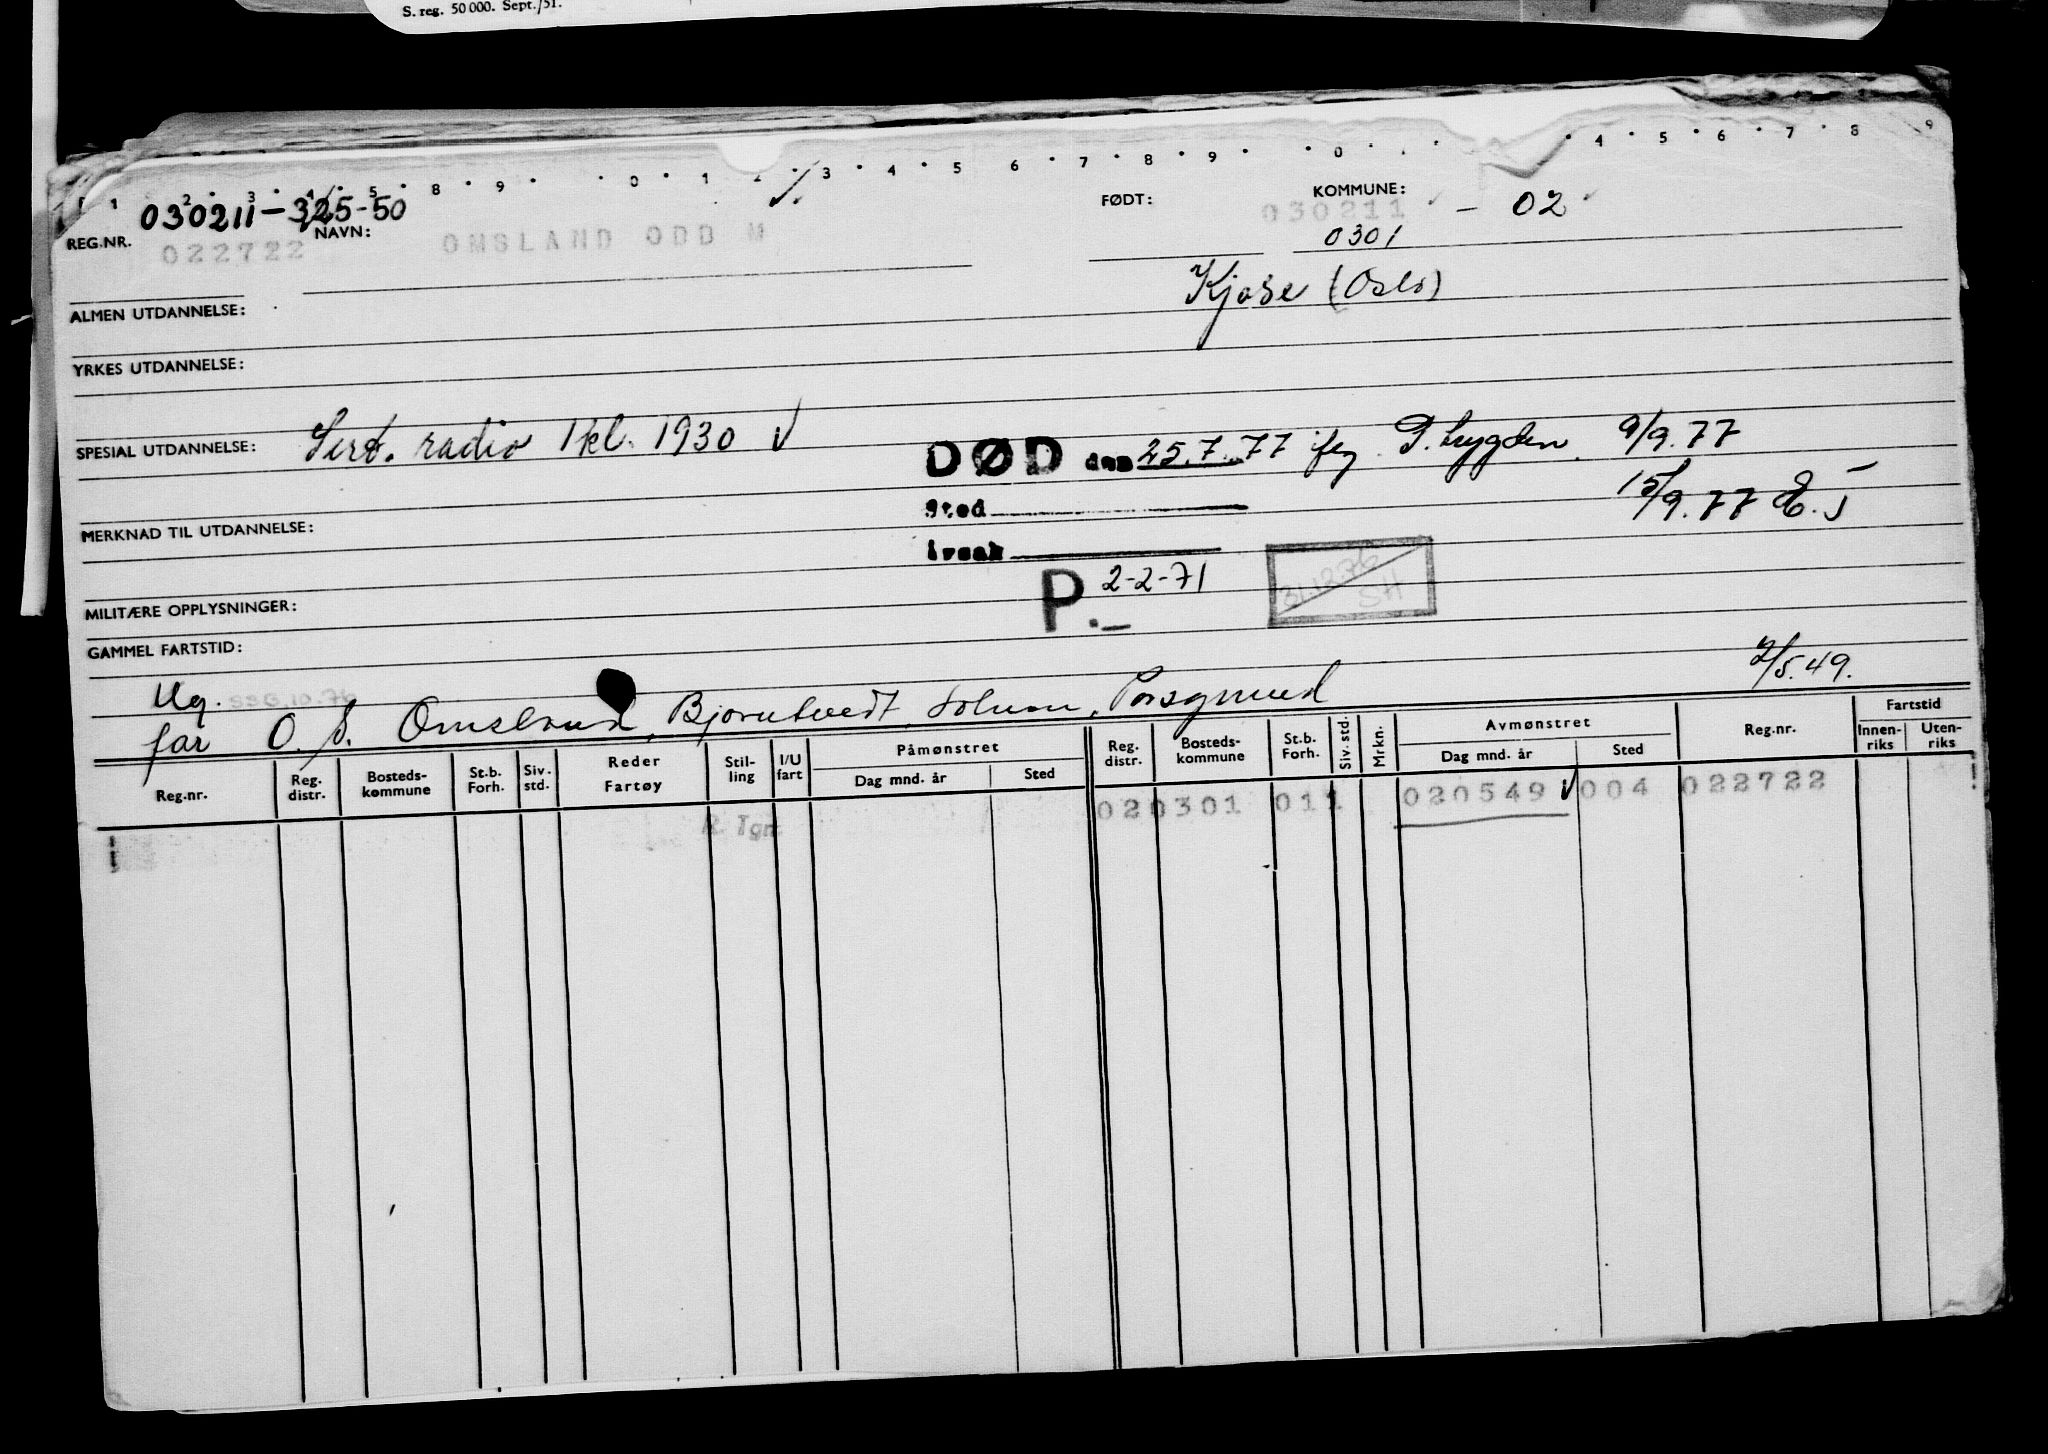 S. reg. 50 000. Sept./51.
1 2 3 4 5 8 9 0 1 3 4 5 6 7 8 9 0 4 5 6 7 8 9
030211-325-50
REG.NR. 022722 NAVN: OMSLAND ODD M FØDT: 030211 KOMMUNE: - 02
0301
Kjose (Oslo)
ALMEN UTDANNELSE:
YRKES UTDANNELSE:
SPESIAL UTDANNELSE: Sert. radio 1 kl. 1930 √
DØD den 25.7.77 P.trygden. 9/9.77
Sted 15/9.77
MERKNAD TIL UTDANNELSE:
årsak
P.— 2-2-71
31.12.76 SH
MILITÆRE OPPLYSNINGER:
GAMMEL FARTSTID:
Ug. 2/5.49.
far O. S. Omsland, Bjørntvedt, Solum, Porsgrund
Reg.nr. Reg. distr. Bosteds-kommune St.b. Forh. Siv. std. Reder Fartøy Stil-ling I/U fart Påmønstret Dag mnd. år Sted Reg. distr. Bosteds-kommune St.b. Forh. Siv. std. Mrkn. Avmønstret Dag mnd. år Sted Reg.nr. Fartstid Innen-riks Uten-riks
R Tgr 020301 011 020549 √ 004 022722